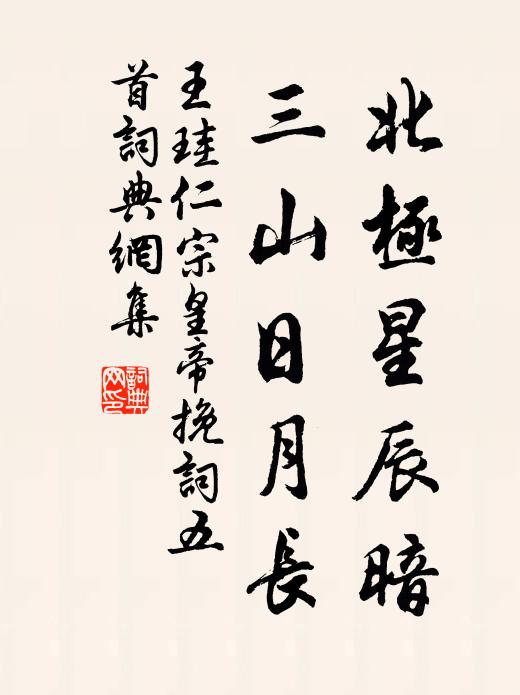 北極星辰暗
三山日月長
王珪仁宗皇帝挽詞五
首詞典網集
詞典
网印